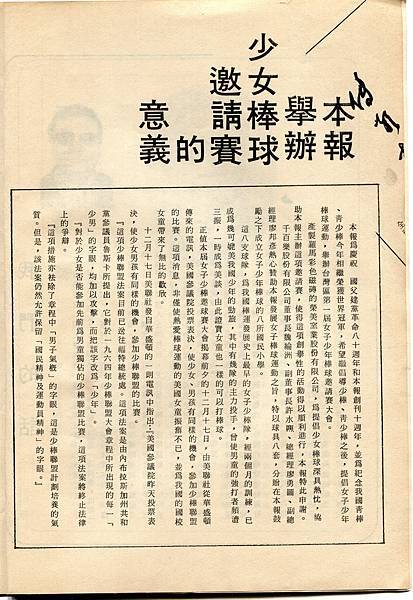 本報舉辦
少女棒球
邀請賽
的
意義
本報為慶祝 國父建黨革命八十週年和本報創刊十週年，並為紀念我國青棒
、青少棒今年相繼榮獲世界冠軍，希望繼倡導少棒、青少棒之後，提倡女子少年
棒球運動，舉辦台灣區第一屆女子少年棒球邀請賽大會。
產製羅馬彩色磁磚的榮美窯業股份有限公司，為提倡少女棒球深具熱忱，協
助本報主辦這項邀請賽，使得這項創舉性的活動得以順利進行，本報特此申謝。
千百樂股份有限公司董事長魏綸洲、副董事長許水興、總經理廖勇國、副總
經理廖邦彥熱心贊助本報發展女子棒球運動之旨，特以球具八套，分贈在本報鼓
勵之下成立女子少年棒球的八所國民小學。
這八支球隊，為我國棒運發展史上最早的女子少年棒球隊，經兩個月的訓練，已
成為幾可媲美我國少年的勁旅，其中有幾隊的主力投手，曾使男童的強打者頻遭
三振，一時成為美談，由此證實女童也一樣的可以打棒球。
正值本屆女子少棒邀球賽大會揭幕前夕的十二月十七日，由美聯社從華盛頓
傳來的電訊，美國參議院投票表決，使少女、男孩有同樣的機會，參加少棒聯盟
的比賽。這項消息，非僅使熱愛棒球運動的美國女童振奮不已，並為我國的國校
女童帶來了無比的歡欣。
十二月十七日美聯社發自華盛頓的一則電訊中指出：「美國參議院昨天投票表
決，使少女與男孩有同樣的機會，參加少棒聯盟的比賽。
『這項少棒聯盟法案目前已送往福特總統處。這項法案是由內布拉斯加州共和
黨參議員魯斯卡所提出，它對於一九六四年少棒聯盟大會章程中所出現的每一「
少男」的字眼，均加以攻擊，而把該字改為「少年」。
『對於少女是否能參加先前為男童獨佔的少棒聯盟比賽，這項法案將終止法律
上的爭辯。
『這項措施亦袪除了章程中「男子氣概」的字眼，這是少棒聯盟計劃培養的氣
質。但是，該法案仍然允許保留「國民精神及運動員精神」的字眼。』